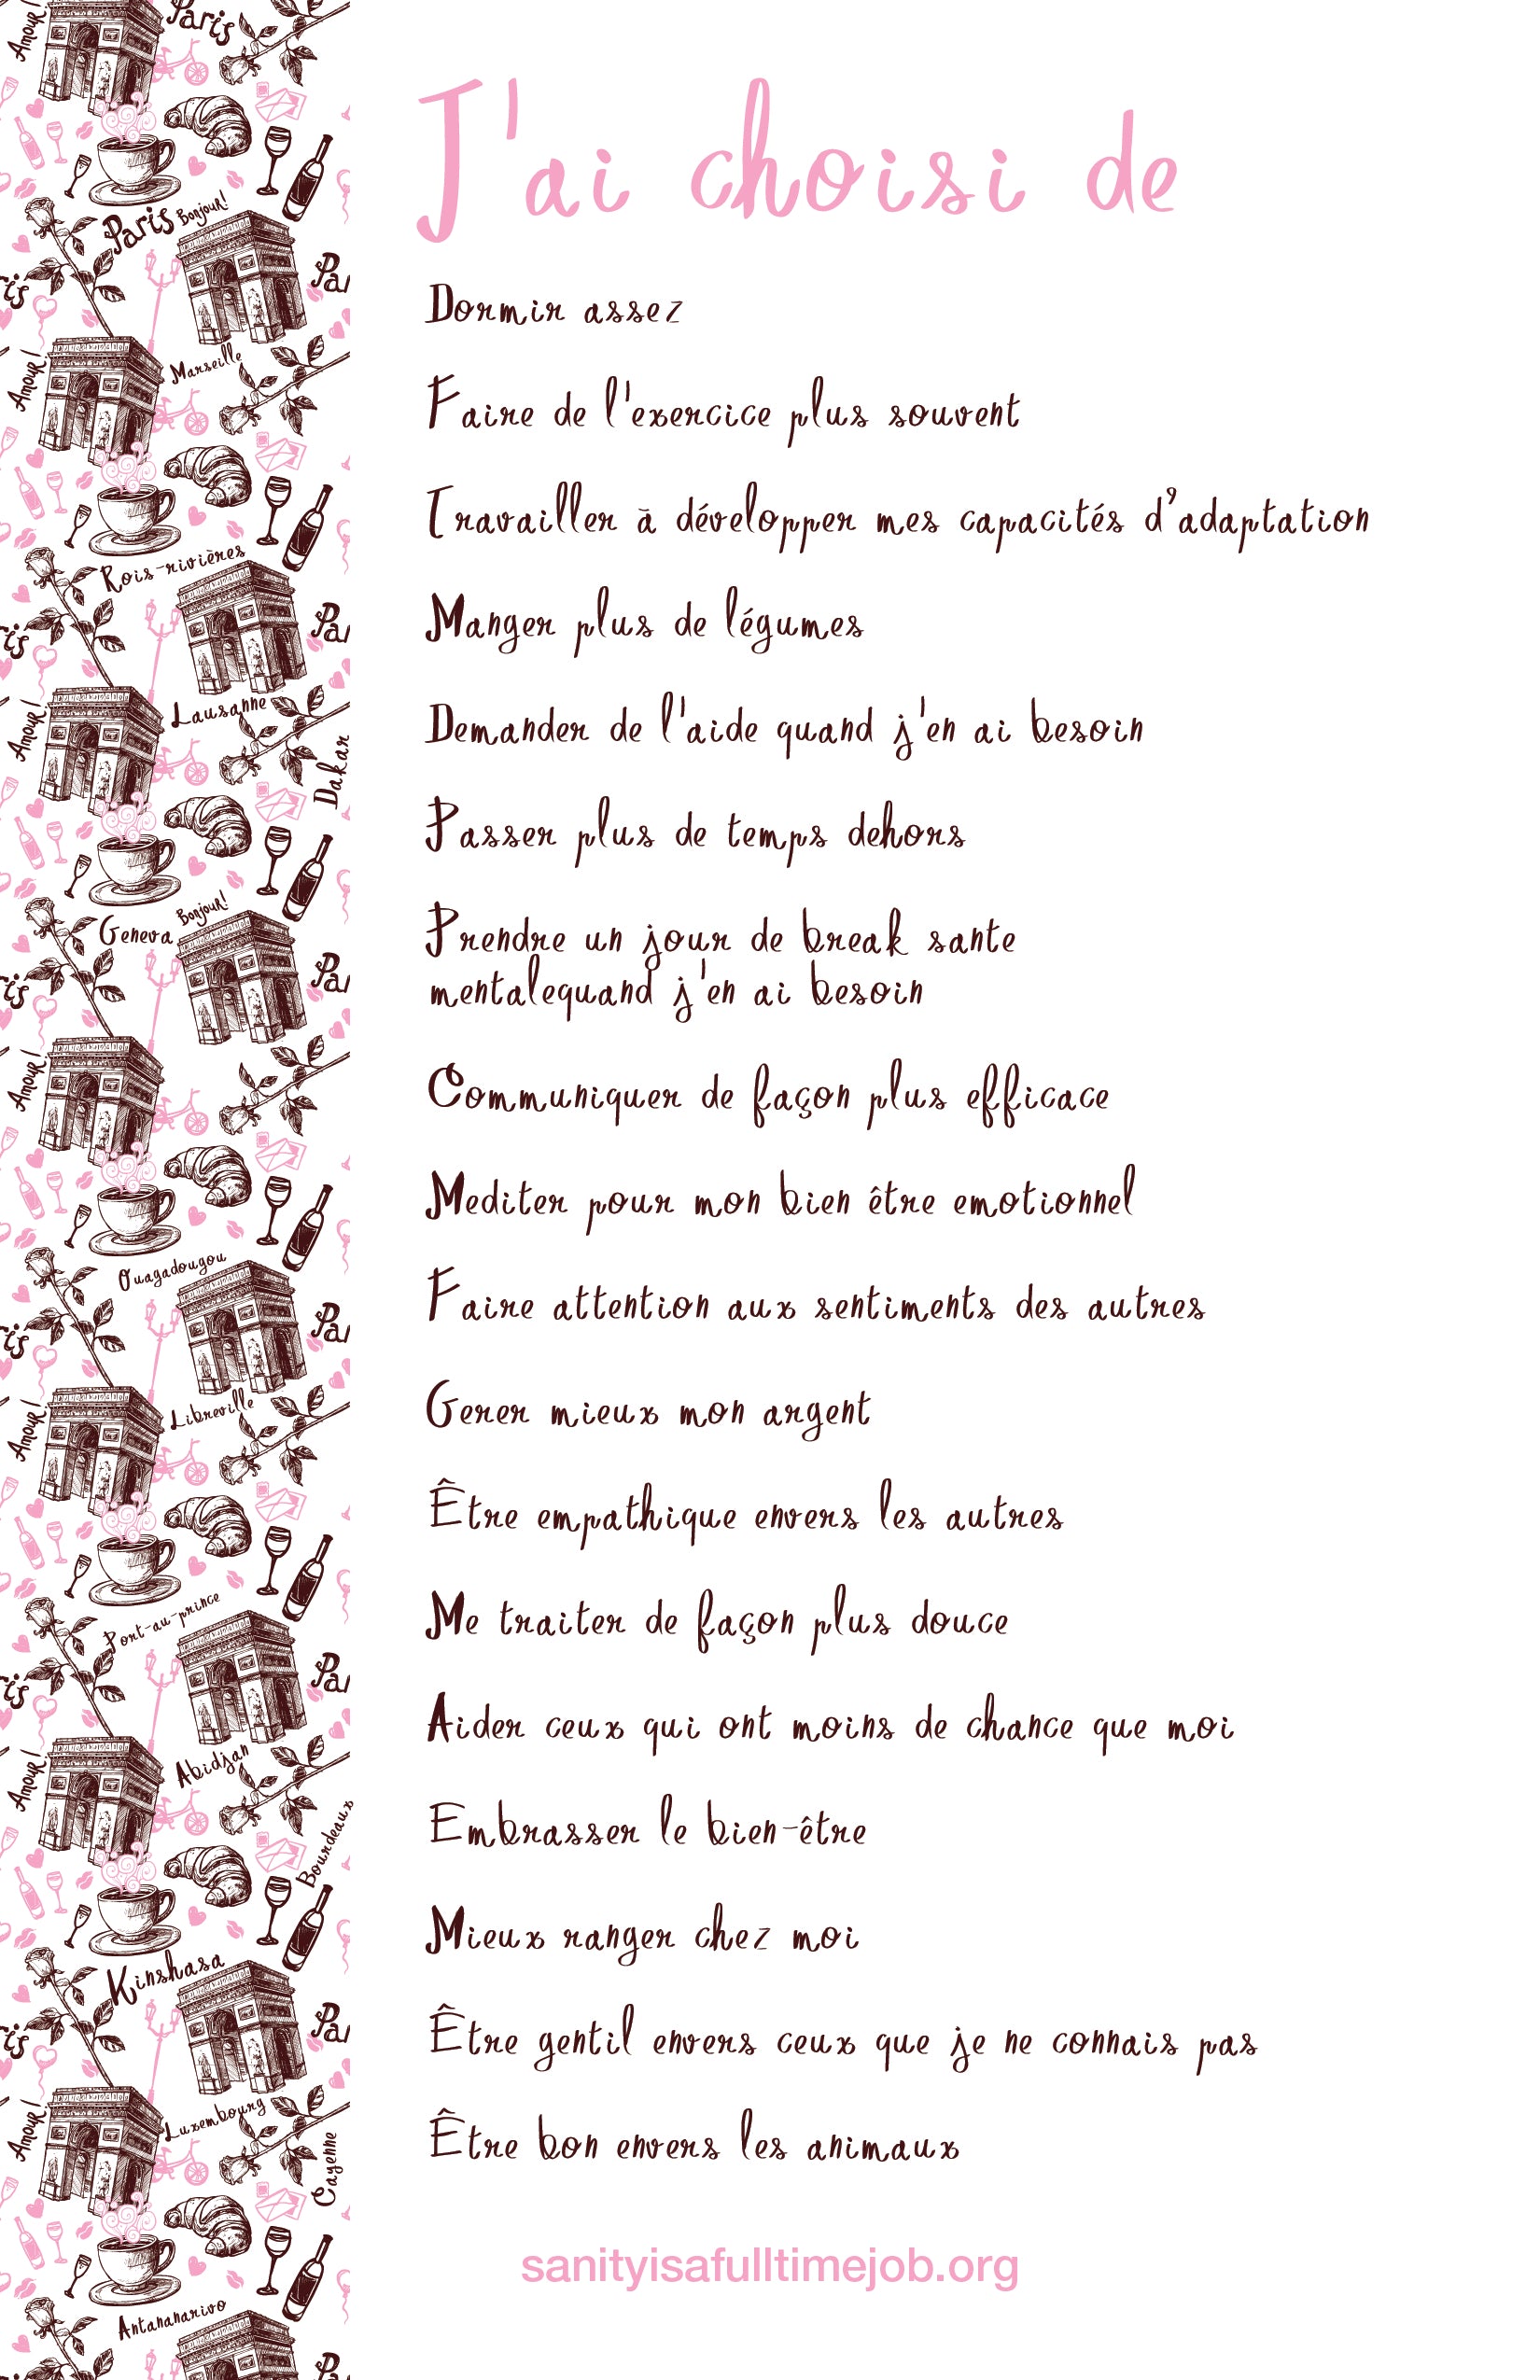 J'ai choisi de
Dormir assez
Faire de l'exercice plus souvent
Travailler à développer mes capacités d'adaptation
Manger plus de légumes
Demander de l'aide quand j'en ai besoin
Passer plus de temps dehors
Prendre un jour de break sante
mentalequand j'en ai besoin
Communiquer de façon plus efficace
Mediter pour mon bien être emotionnel
Faire attention aux sentiments des autres
Gerer mieux mon argent
Être empathique envers les autres
Me traiter de façon plus douce
Aider ceux qui ont moins de chance que moi
Embrasser le bien-être
Mieux ranger chez moi
Être gentil envers ceux que je ne connais pas
Être bon envers les animaux
sanityisafulltimejob.org
Amour!
Paris
Paris
Bonjour!
Amour!
Marseille
Rois-rivières
Amour!
Lausanne
Dakar
Geneva
Bonjour!
Amour!
Ouagadougou
Amour!
Libreville
Port-au-prince
Amour!
Abidjan
Bourdeaux
Kinshasa
Amour!
Luxembourg
Cayenne
Antananarivo